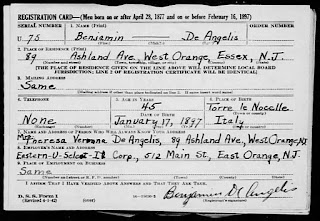 REGISTRATION CARD—(Men born on or after April 28, 1877 and on or before February 16, 1897)
SERIAL NUMBER
1. NAME (Print)
ORDER NUMBER
U 75 Benjamin De Angelis
2. PLACE OF RESIDENCE (Print)
89 Ashland Ave., West Orange, Essex, N.J.
[THE PLACE OF RESIDENCE GIVEN ON THE LINE ABOVE WILL DETERMINE LOCAL BOARD
JURISDICTION; LINE 2 OF REGISTRATION CERTIFICATE WILL BE IDENTICAL]
3. MAILING ADDRESS
Same
4. TELEPHONE
5. AGE IN YEARS
6. PLACE OF BIRTH
45
Torre le Nocelle
DATE OF BIRTH
None January 17, 1897 Italy
7. NAME AND ADDRESS OF PERSON WHO WILL ALWAYS KNOW YOUR ADDRESS
Theresa De Angelis, 89 Ashland Ave., West Orange, NJ
8. EMPLOYER'S NAME AND ADDRESS
Eastern-U-Select-It Corp., 512 Main St., East Orange, N.J.
9. PLACE OF EMPLOYMENT OR BUSINESS
Same
I AFFIRM THAT I HAVE VERIFIED ABOVE ANSWERS AND THAT THEY ARE TRUE.
D. S. S. Form 1
(Revised 4-1-42)
Benjamin De Angelis